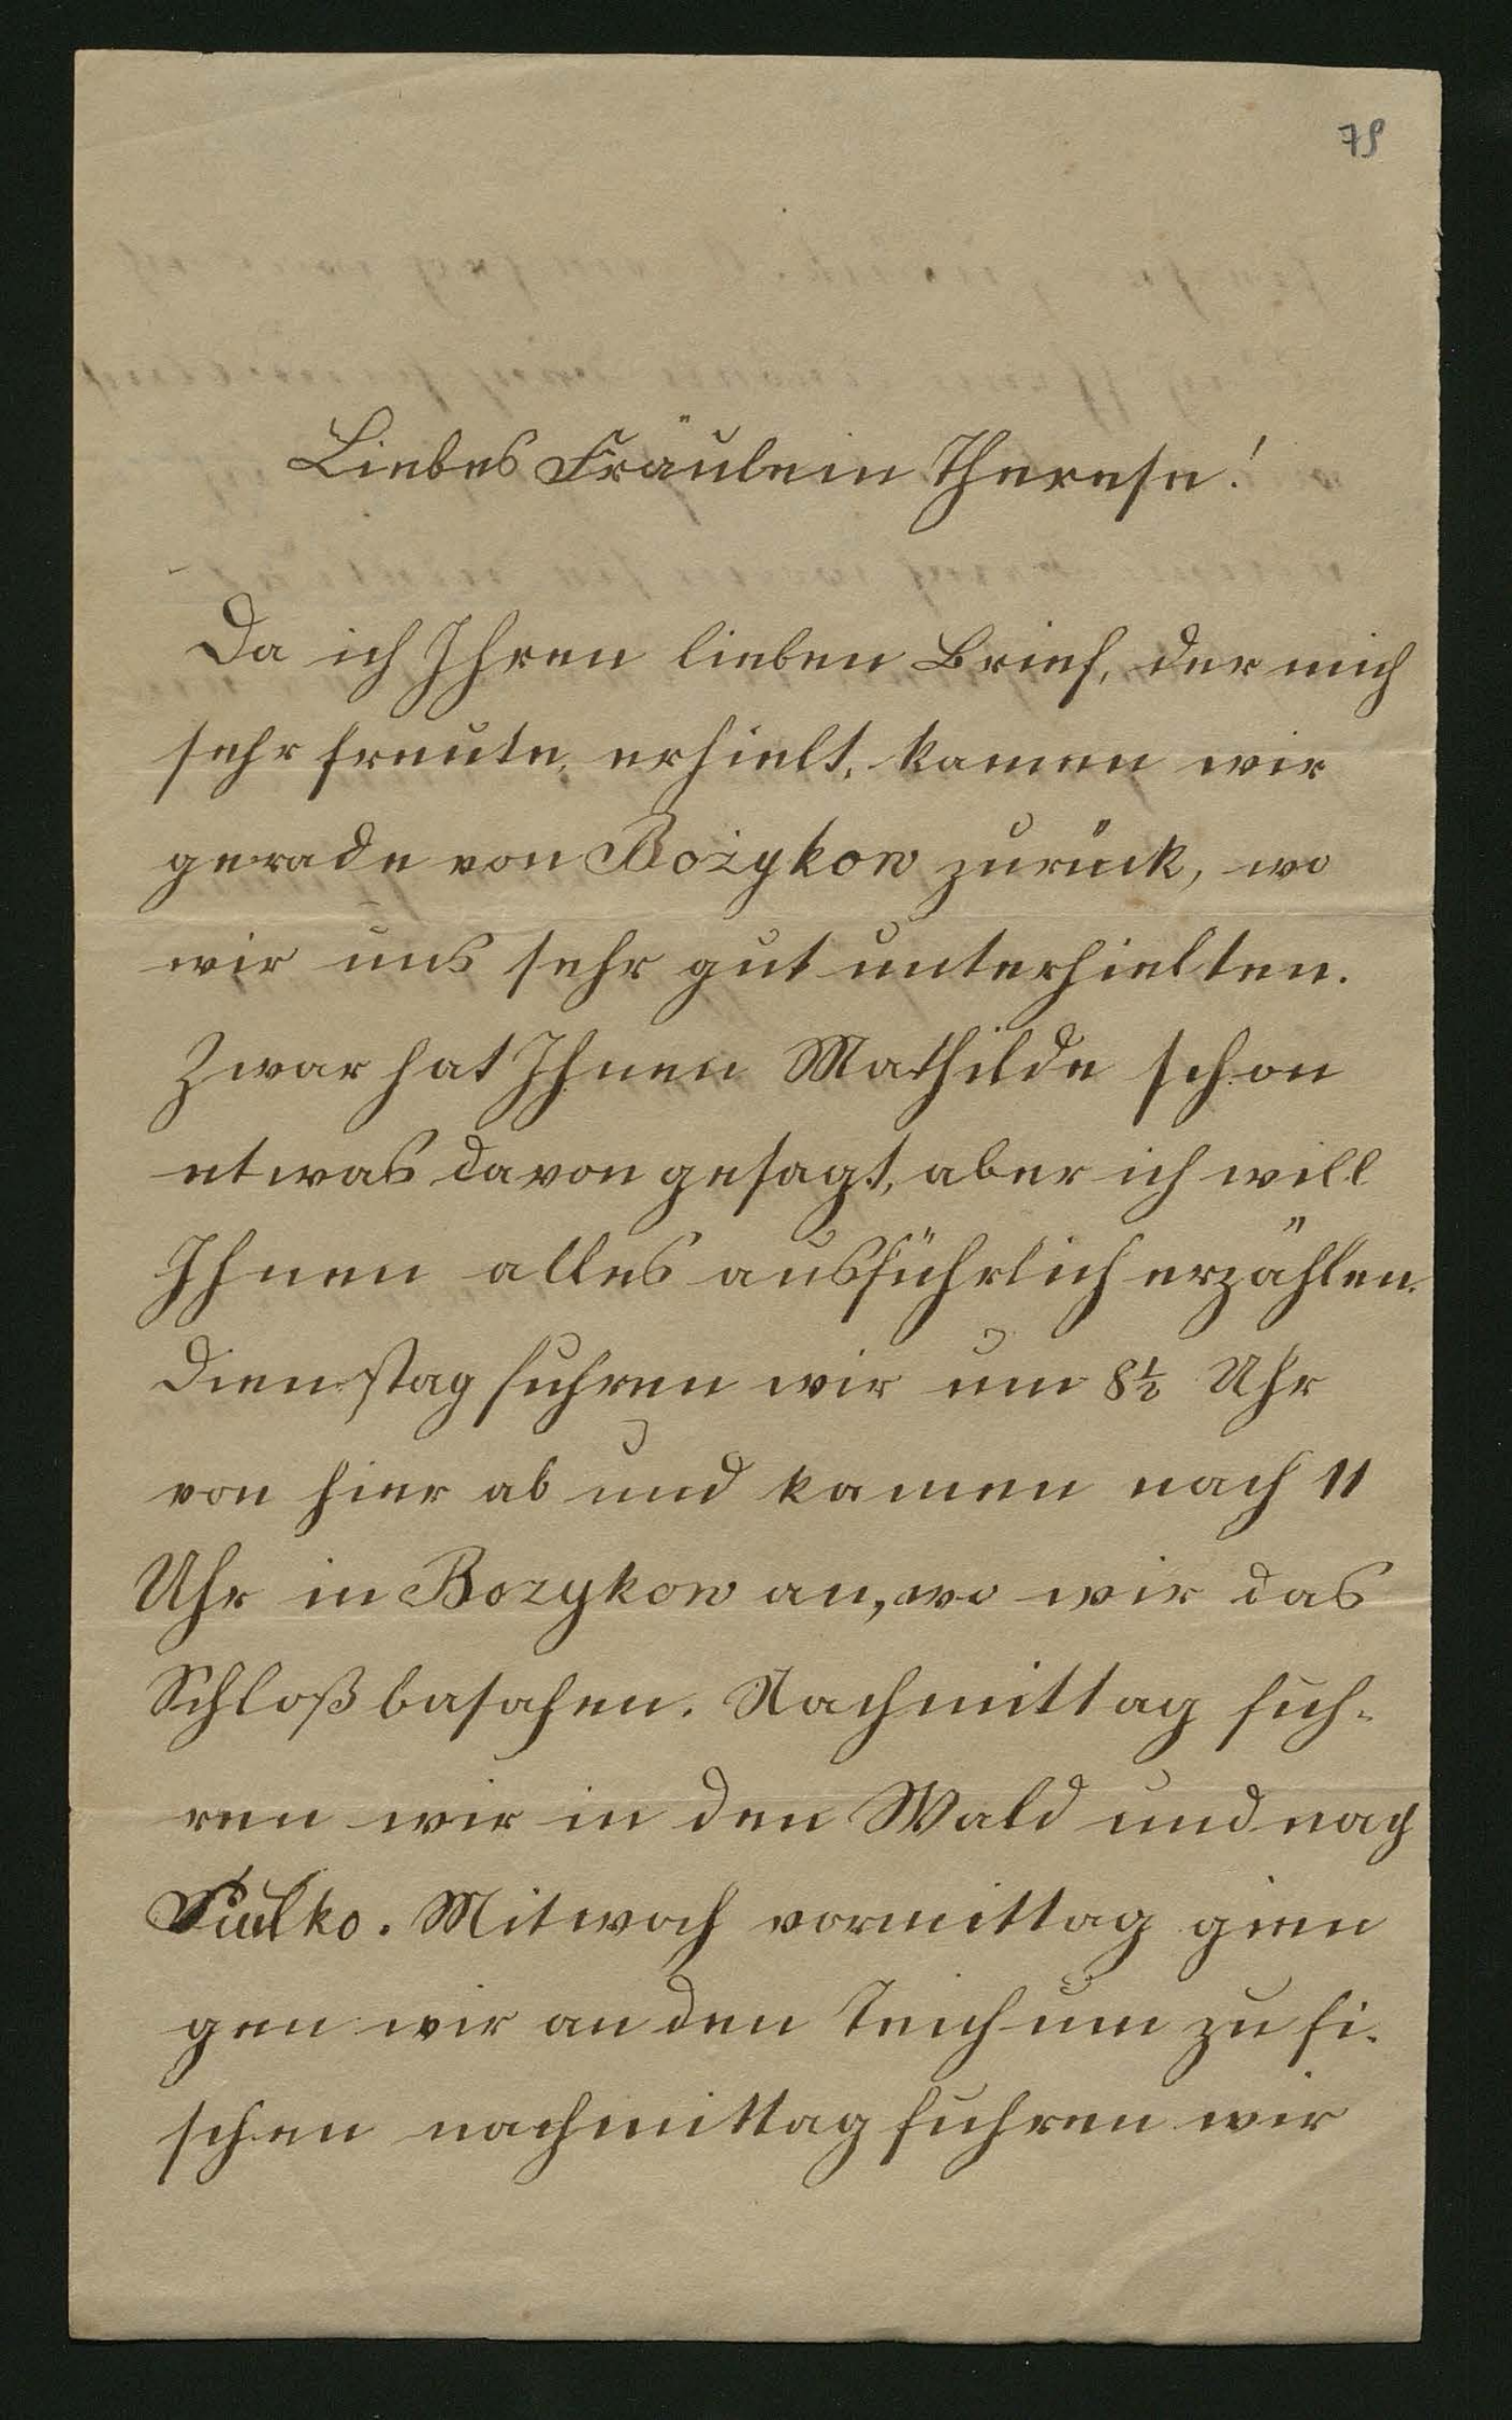 79
Liebes Fräulein Therese!
Da ich Ihren lieben Brief, der mich
sehr freute, erhielt, kamen wir
gerade von Bożykow zurück, wo
wir uns sehr gut unterhielten.
Zwar hat Ihnen Mathilde schon
etwas davon gesagt, aber ich will
Ihnen alles ausführlich erzählen.
Dienstag fuhren wir um 8½ Uhr
von hier ab und kamen nach 11
Uhr in Bozykow an, wo wir das
Schloß basahen. Nachmittag fuh-
ren wir in den Wald und nach
Mitwoch vormittag gien
gen wir an den Teich um zu fi-
schen nachmittag fuhren wir